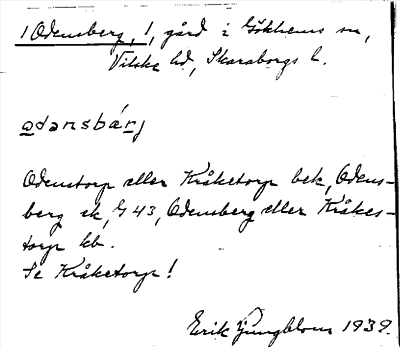 1 Odensberg, 1, gård i Gökhems sn,
Vilske hd, Skaraborgs l.
odənsbárj
Odenstorp eller Kråketorp bek, Odens-
berg ek, G 43, Odensberg eller Kråkes-
torp kb.
Se Kråketorp!
Erik Ljungblom 1939.